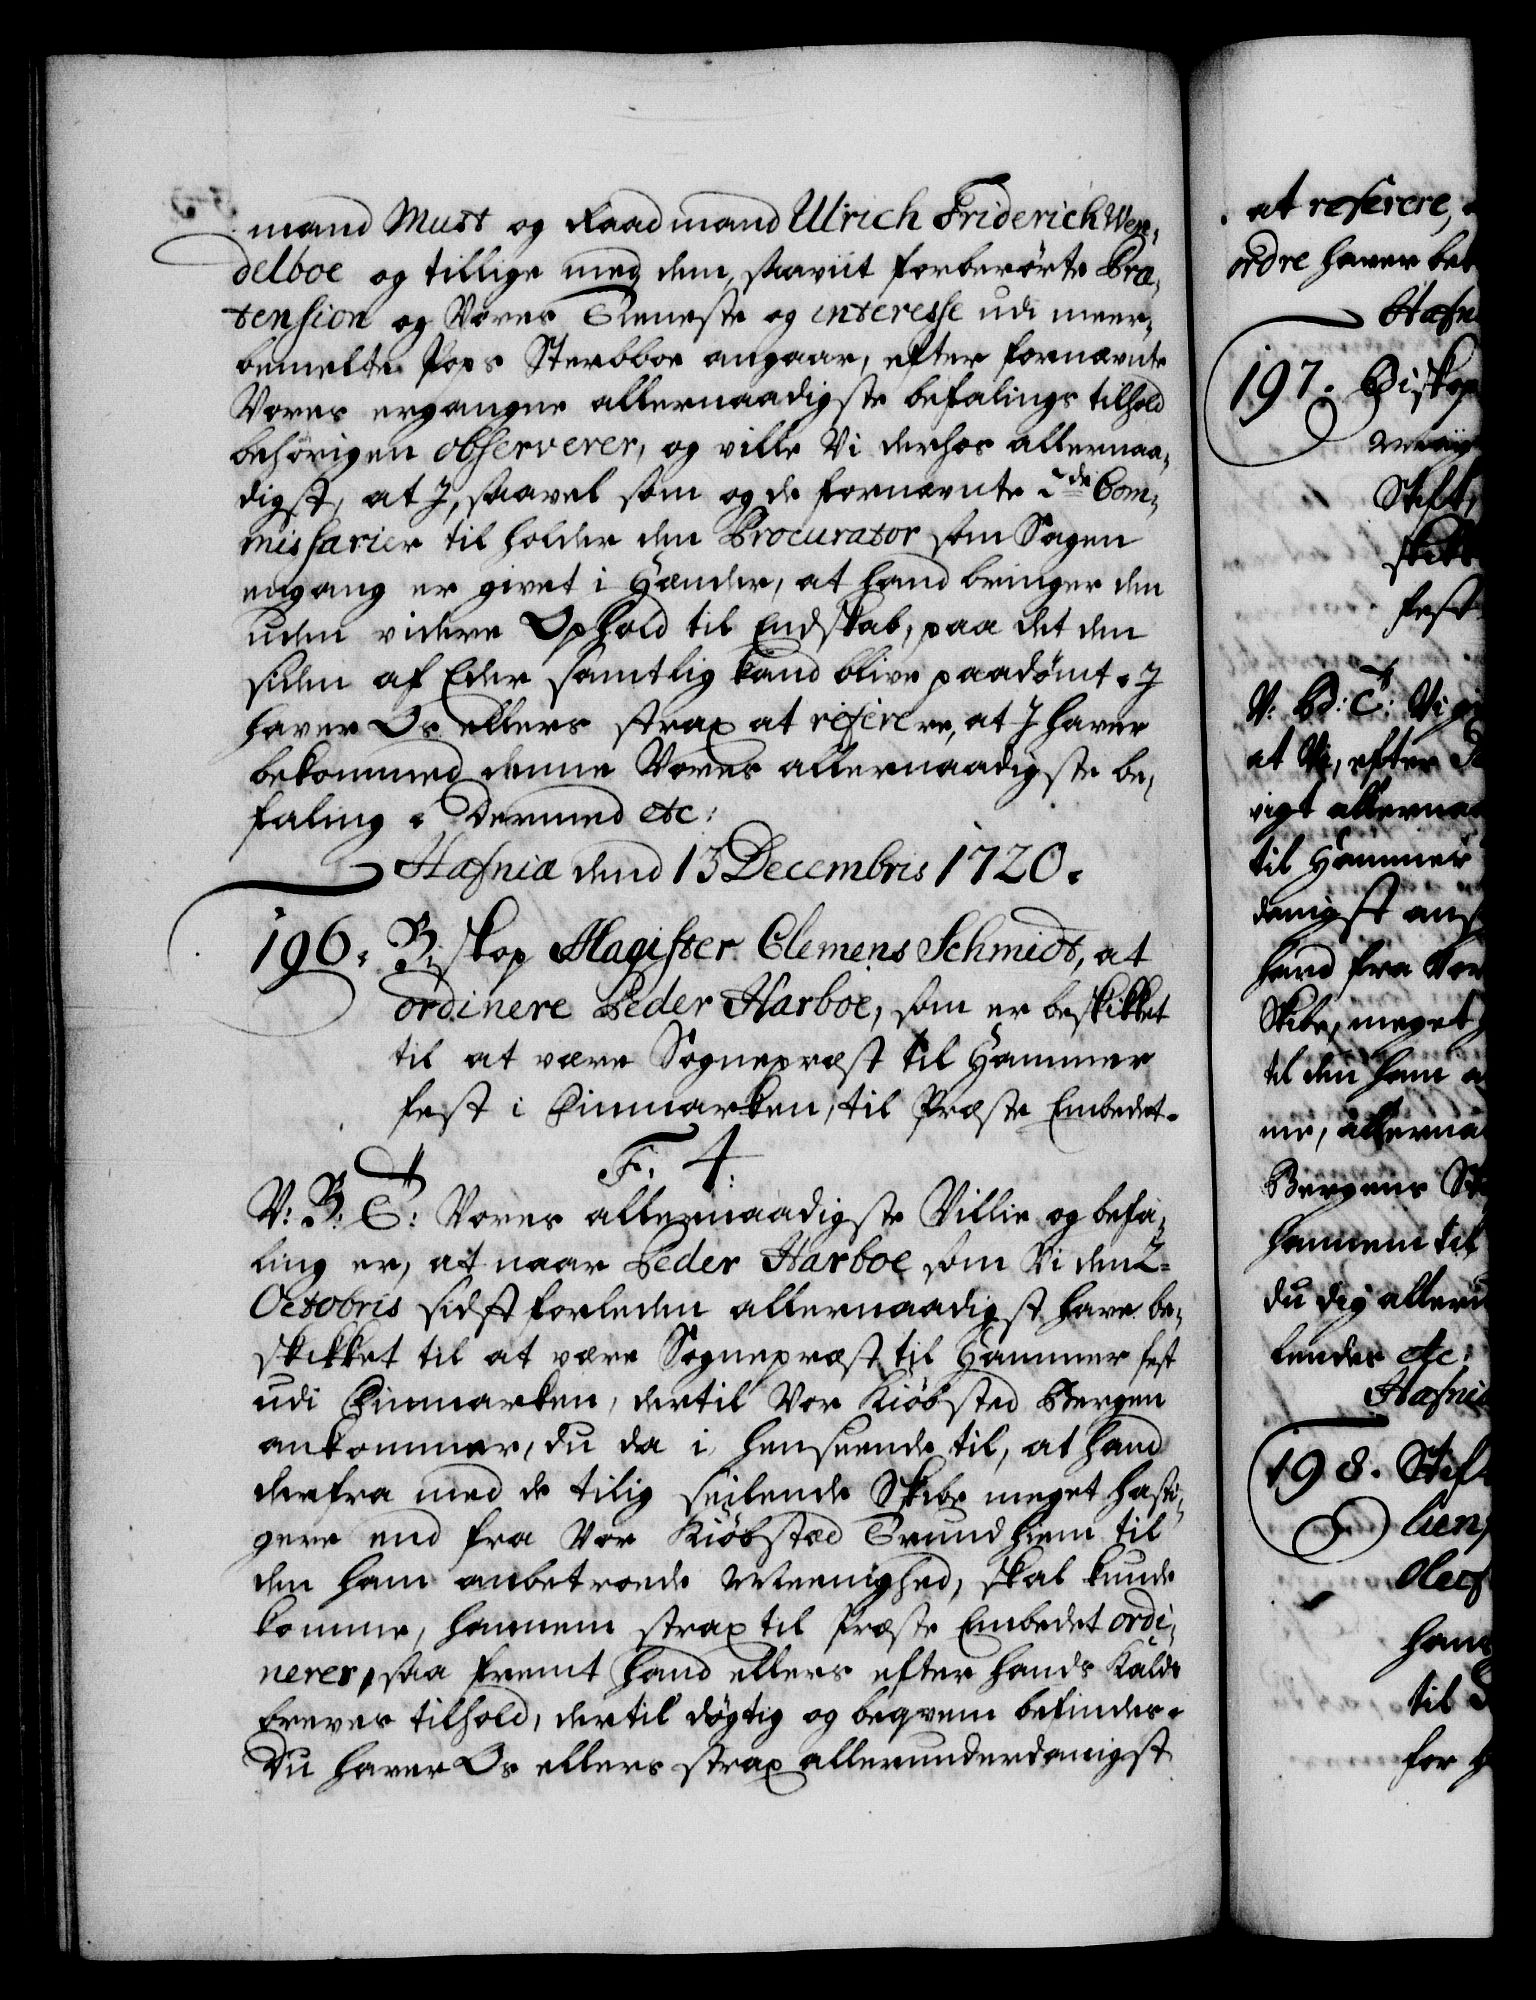 mand Must og Raadmand Ulrich Friderich Wen¬
delboe og tillige med dem, saaviit forberörte Præ¬
tension og Vores Tieneste og interesse udi meer¬
bemelte Pops Sterbboe angaar, efter fornævnte
Vores ergangne allernaadigste befalings tilhold
behörigen observerer, og ville Vi derhos allernaa¬
digst, at J, saavel som og de fornævnte 2de Com¬
missarier til holder den Procurator som Sagen
engang er givet i Hænder, at hand bringer den
uden videre Ophold til Endskab, paa det den
siden af Eder samtlig kand blive paadömt. J
haver Os ellers strax at referere, at J haver
bekommed denne Vores allernaadigste be¬
faling. Dermed etc:
Hafniæ dend 13 Decembris 1720.
196. Biskop Magister Clemens Schmidt, at
ordinere Peder Harboe, som er beskikket
til at være Sognepræst til Hammer
fest i Finmarken, til Præste Embedet.
F. 4.
V: B: T: Vores allernaadigste Villie og befa¬
ling er, at naar Peder Harboe som Vi den 2
Octobris sidst forleden allernaadigst have be¬
skikket til at være Sognepræst til Hammer fest
udi Finmarken, dertil Vor Kiöbsted Bergen
ankommer, du da i henseende til, at hand
derfra med de tilig seilende Skibe meget hasti¬
gere end fra Vor Kiöbstæd Trundhiem til
den ham anbetroede Meenighed, skal kunde
komme, hannem strax til Præste Embedet ordi¬
nerer, saa fremt hand ellers efter hands Kalds
breves tilhold, dertil dögtig og beqvem befindes.
Du haver Os ellers strax allerunderdanigst
at referere,
ordre haver bek
Hafn
197. Biskop
Stift,
skikk
fest
V: B: T: Vi gi
at Vi, efter
vigt allernaa
til Hammer
danigst ans
hand fra Vor
Skibe, meget
til den ham a
me, allernaa
Bergens St
hannem til
du dig allern
lendes etc:
Hafniæ
198. Stift
lien
Oles
ham
til
for h